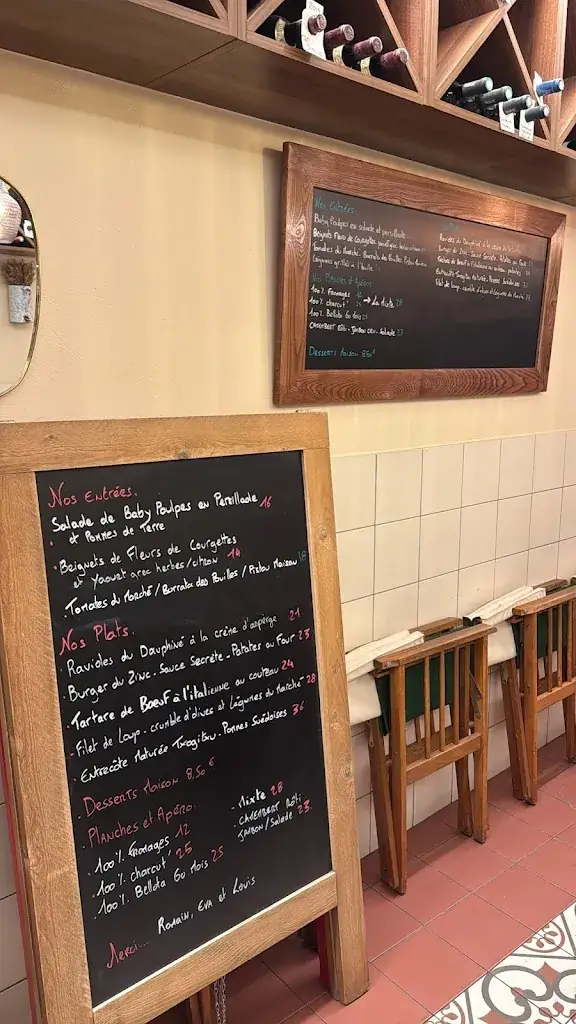 Nos Entrées
Baby Poulpes en salade et persillade
Beignets Fleurs de Courgettes
Tomates du Marché - Burrata des Pouilles
Nos Planches et Apéros
100% Fromages 12
100% charcut' → La Mixte 28
100% Bellota 60 mois 25
CAMEMBERT Rôti - Jambon cru - Salade 23
Desserts Maison 8,50€
Ravioles du Dauphiné à la crème
Burger du Zinc - Sauce Secrète - Patates au Four
Nos Entrées.
Salade de Baby Poulpes en Persillade 16
et Pommes de Terre
· Beignets de Fleurs de Courgettes
et Yaourt avec herbes/citron 14
Tomates du Marché / Burrata des Pouilles / Pistou Maison 18
Nos Plats.
· Ravioles du Dauphiné à la crème d'asperge 21
· Burger du Zinc - Sauce Secrète - Patates au Four 23
· Tartare de Boeuf à l'italienne au couteau 24
· Filet de Loup - crumble d'olives et Légumes du Marché 28
· Entrecôte Maturée Txogitxu - Pommes Suédoises 36
· Desserts Maison 8,50€
· Planches et Apéro.
· 100% Fromages 12
· 100% charcut' 25
· 100% Bellota 60 Mois 25
- Mixte 28
- CAMEMBERT Rôti
JAMBON/Salade 23.
Merci...
Romain, Eva et Louis